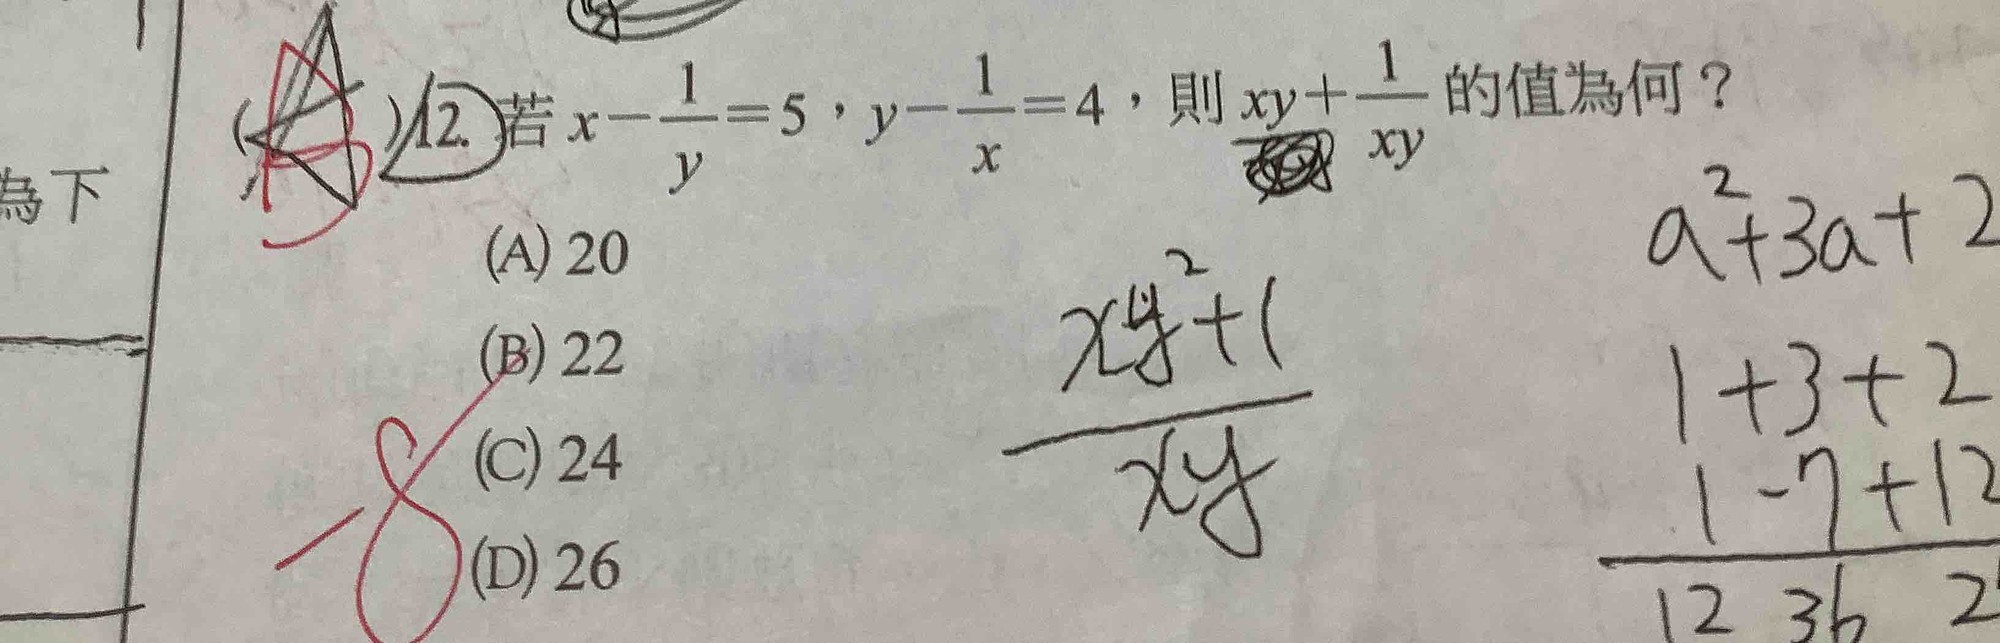 為下
( )12. 若 x－1/y＝5，y－1/x＝4，則 xy＋1/xy 的值為何？
(A) 20
(B) 22
(C) 24
(D) 26
-8
xy²+1
xy
a²+3a+2
1+3+2
1-7+12
12 36 2